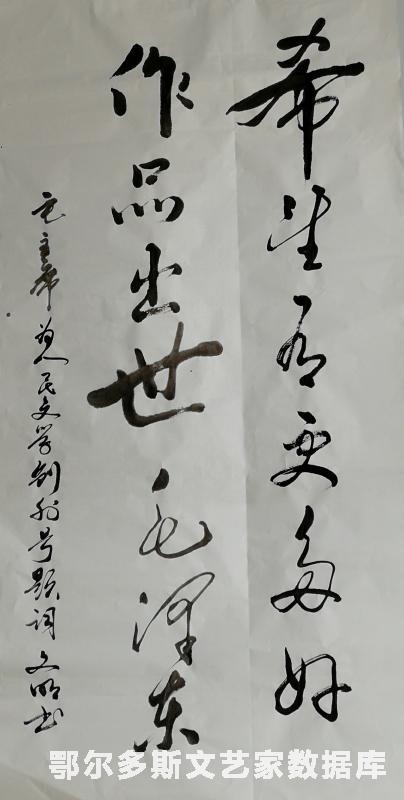 希望有更多好
作品出世 毛泽东
毛主席为人民文学创刊号题词 文明书
鄂尔多斯文艺家数据库